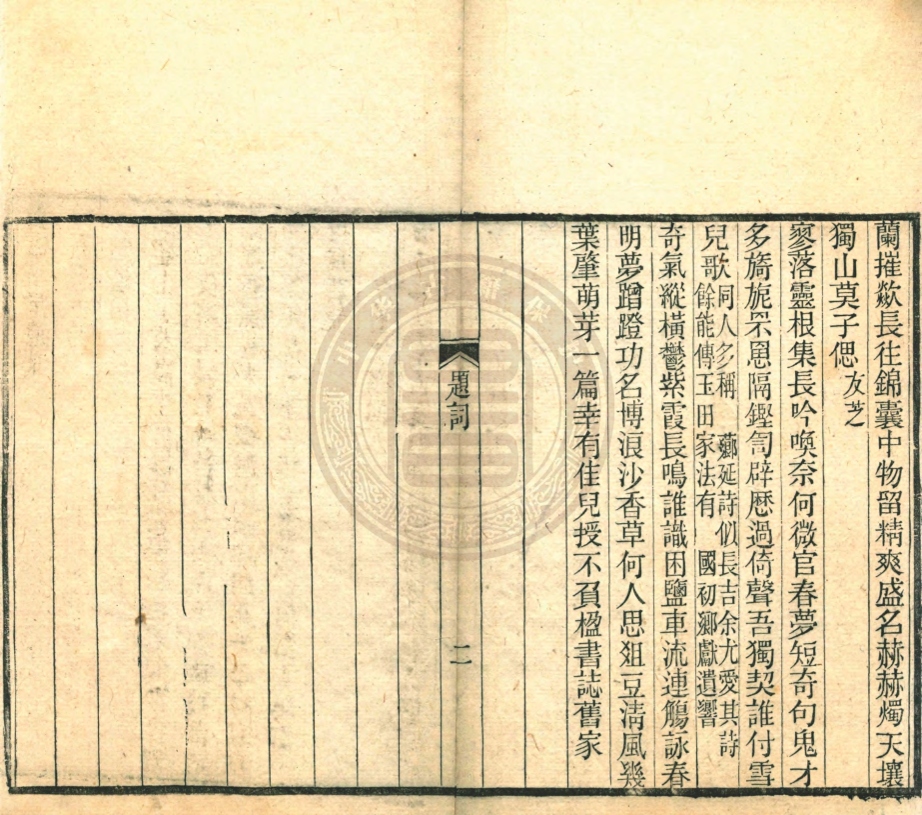 蘭摧歘長往錦囊中物留精爽盛名赫赫燭天壤
獨山莫子偲友芝
寥落靈根集長吟喚奈何微官春夢短奇句鬼才
多旖旎罘罳隔鏗訇辟歷過倚聲吾獨契誰付雪
兒歌同人多稱 薌延詩似長吉余尤愛其詩
餘能傳玉田家法有 國初鄉獻遺響
奇氣縱橫鬱紫霞長鳴誰識困鹽車流連觴詠春
明夢蹭蹬功名博浪沙香草何人思俎豆淸風幾
葉肇萌芽一篇幸有佳兒授不負楹書誌舊家
題詞
二